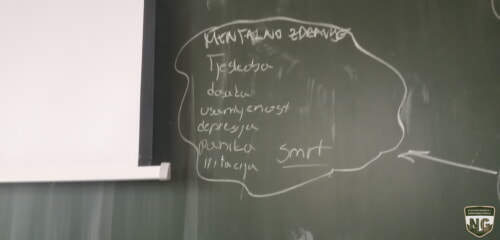 MENTALNO ZDRAVLJE
Tjeskoba
dosada
usamljenost
depresija
panika smrt
iritacija
NG